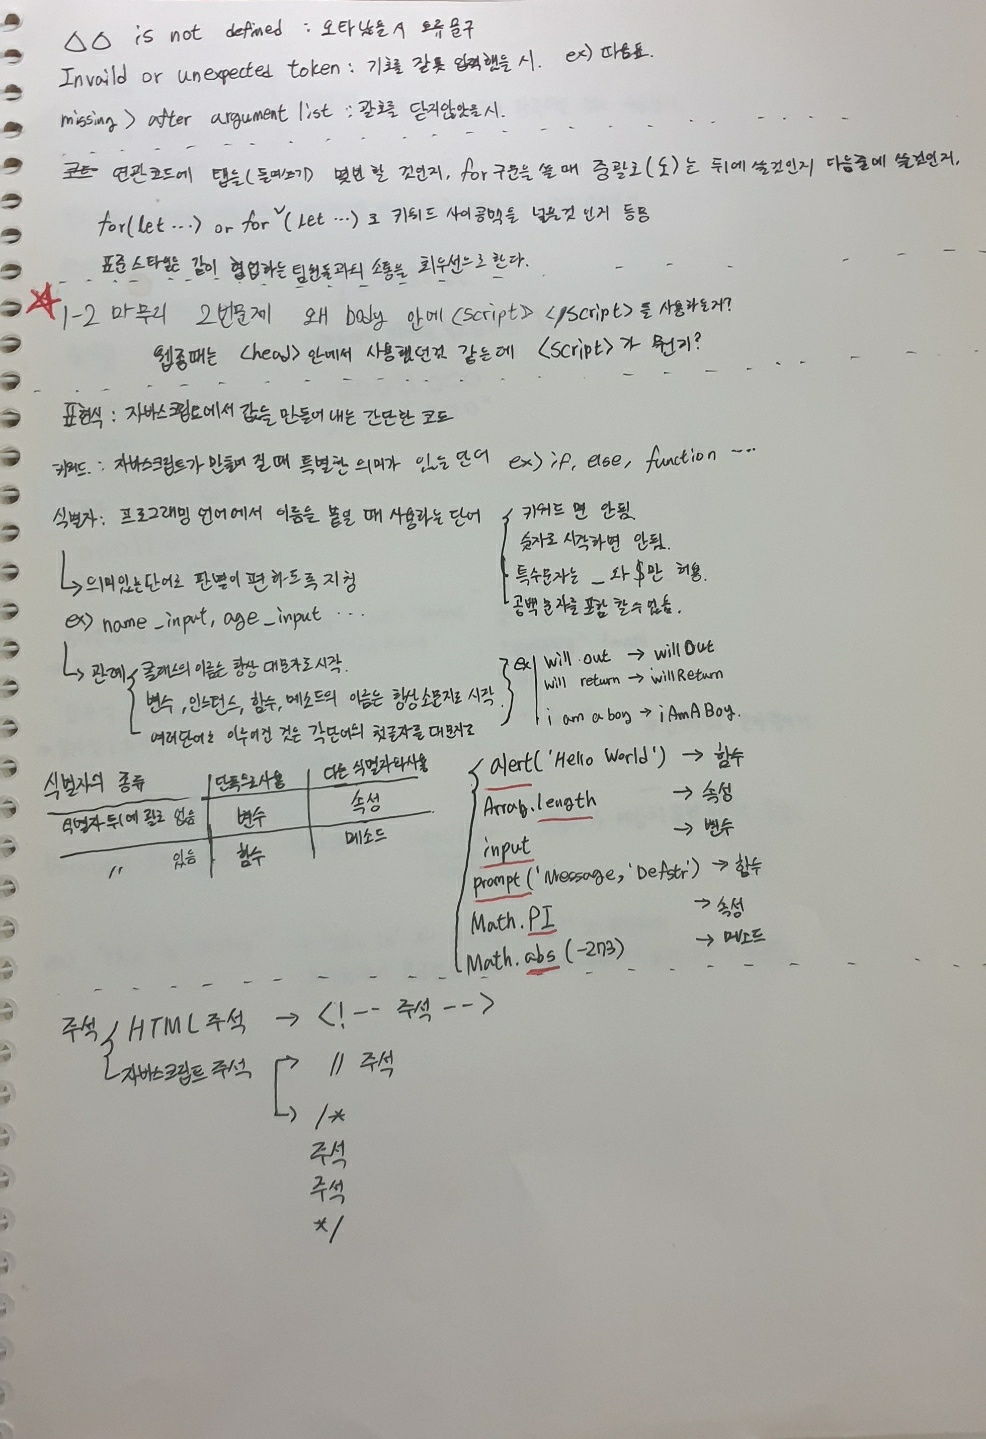 △△ is not defined : 오타났을시 오류문구
Invaild or unexpected token : 기호를 잘못 입력했을 시. ex) 따옴표.
missing > after argument list : 괄호를 닫지않았을시.
연관코드에 탭을(들여쓰기) 몇번 할 것인지, for구문을 쓸 때 중괄호( )는 뒤에 쓸것인지 다음줄에 쓸것인지,
for(let ...) or for ˅(let ...)로 키워드 사이공백을 넣을것 인지 등등
표준 스타일은 같이 협업하는 팀원들과의 소통을 최우선으로 한다.
☆ 1-2 마무리 2번문제 왜 body 안에 <script> </script>를 사용하는가?
웹 때는 <head> 안에서 사용했던것 같은데 <script>가 뭔지?
표현식 : 자바스크립트에서 값을 만들어 내는 간단한 코드
키워드 : 자바스크립트가 만들어 질 때 특별한 의미가 있는 단어 ex) if, else, function ...
식별자 : 프로그래밍 언어에서 이름을 붙일 때 사용하는 단어
키워드 면 안됨.
숫자로 시작하면 안됨.
특수문자는 _ 와 $만 허용.
공백 문자를 포함 할수 없음.
↳ 의미있는단어로 판별이 편하도록 지정
ex) name_input, age_input ...
↳ 관례
클래스의 이름은 항상 대문자로 시작.
변수, 인스턴스, 함수, 메소드의 이름은 항상 소문자로 시작.
여러단어로 이루어진 것은 각단어의 첫글자를 대문자로
ex) will out → willOut
will return → willReturn
i am a boy → iAmABoy.
식별자의 종류 단독으로사용 다른 식별자와사용
식별자 뒤에 괄호 없음 변수 속성
〃 있음 함수 메소드
alert('Hello World') → 함수
Array.length → 속성
input → 변수
prompt('Message, 'Defstr') → 함수
Math.PI → 속성
Math.abs(-273) → 메소드
주석
HTML 주석 → <!-- 주석 -->
자바스크립트 주석
→ // 주석
→ /*
주석
주석
*/